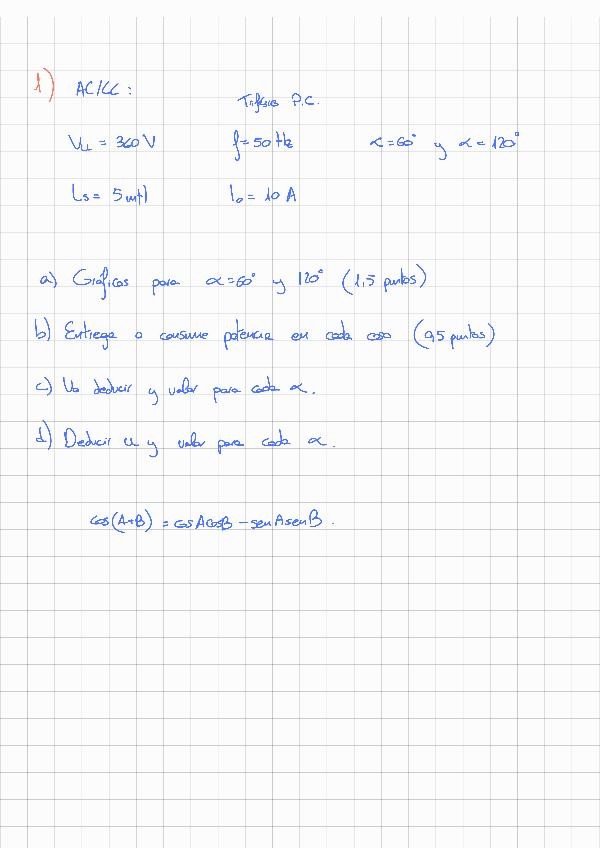 1) AC/CC:
Trifásico P.C.
VLL = 360 V f = 50 Hz α = 60° y α = 120°
Ls = 5 mH Io = 10 A
a) Gráficas para α = 60° y 120° (1,5 puntos)
b) Entrega o consume potencia en cada caso (0,5 puntos)
c) Vo deducir y valor para cada α.
d) Deducir u y valor para cada α.
cos(A+B) = cosAcosB - senAsenB.